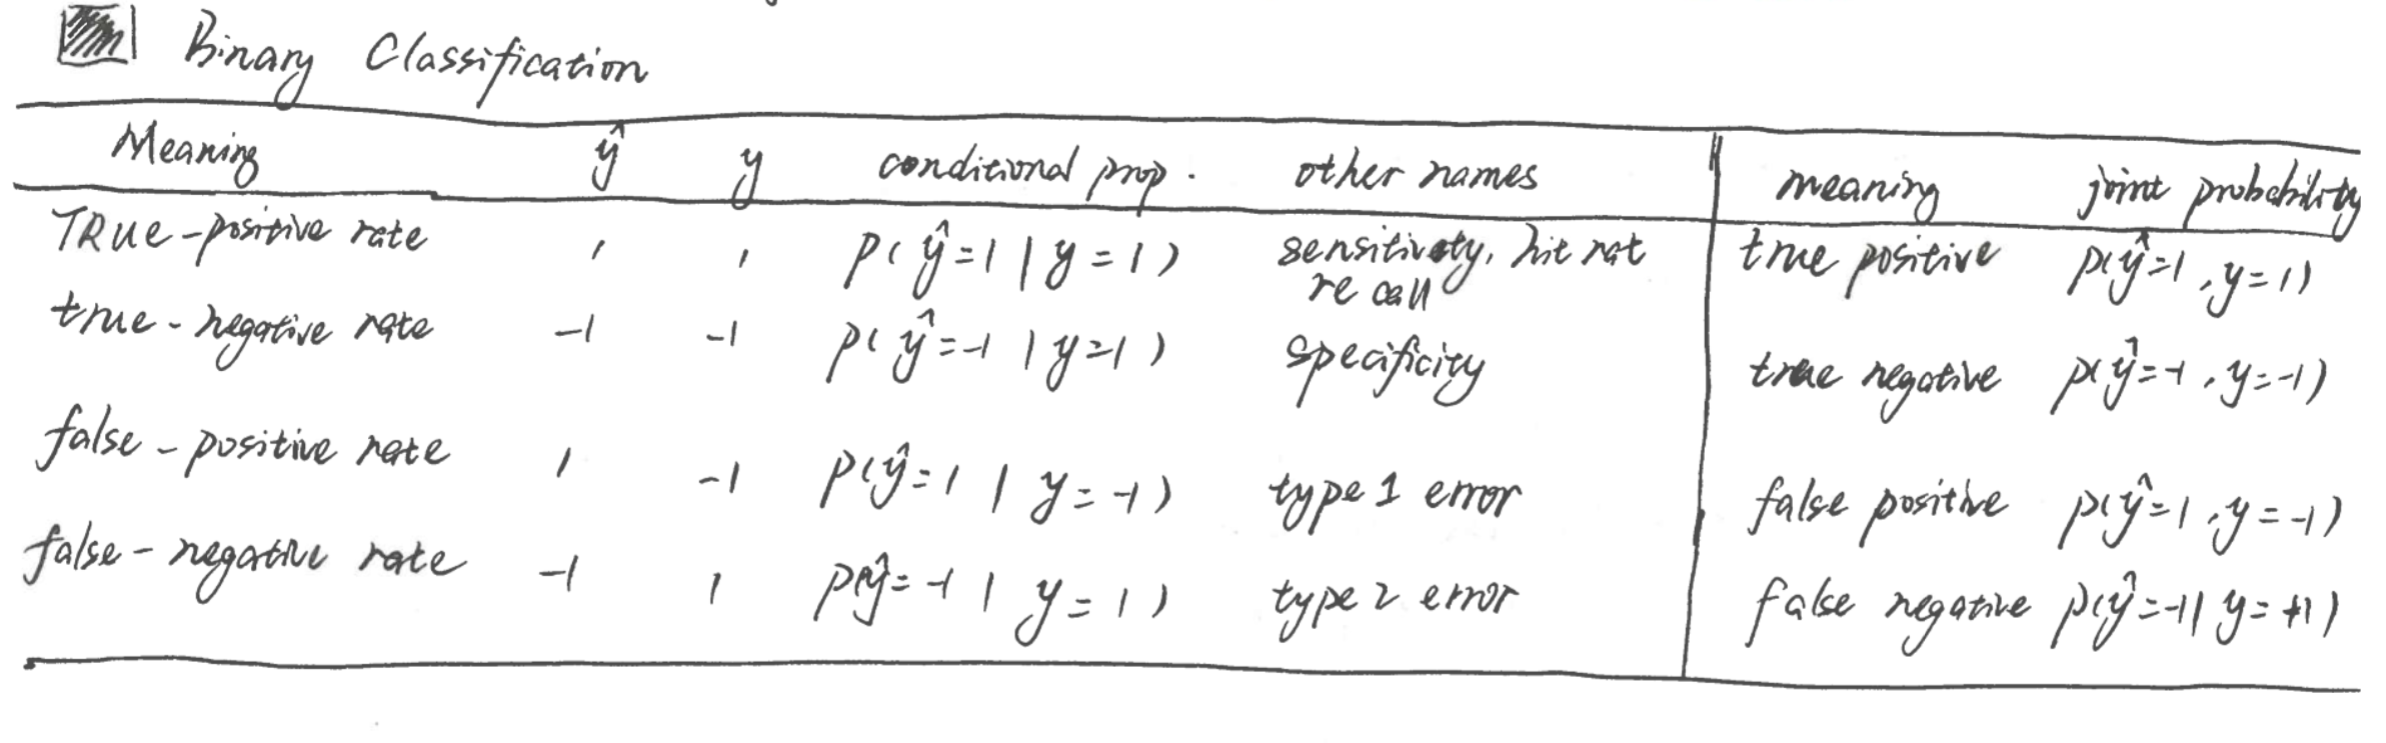 Binary Classification
Meaning ŷ y conditional prop. other names meaning joint probability
TRUe-positive rate 1 1 p(ŷ=1 | y=1) sensitivity, hit rat true positive p(ŷ=1, y=1)
recall
true-negative rate -1 -1 p(ŷ=-1 | y=-1) specificity true negative p(ŷ=-1, y=-1)
false-positive rate 1 -1 p(ŷ=1 | y=-1) type 1 error false positive p(ŷ=1, y=-1)
false-negative rate -1 1 p(ŷ=-1 | y=1) type 2 error false negative p(ŷ=-1| y=+1)